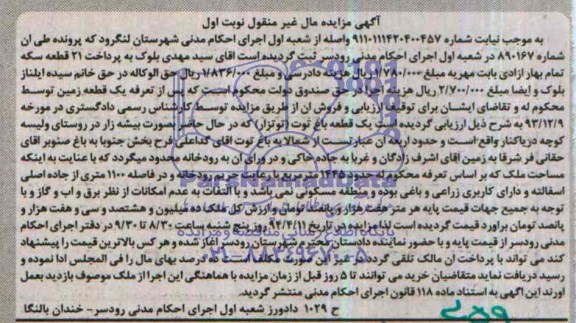 آگهی مزایده مال غیر منقول نوبت اول
به موجب نیابت شماره ۹۱۱۰۱۱۱۴۲۰۴۰۰۴۵۷ واصله از شعبه اول اجرای احکام مدنی شهرستان لنگرود که پرونده طی ان
شماره ۸۹۰۱۶۷ در شعبه اول اجرای احکام مدنی رودسر ثبت گردیده است اقای سید مهدی بلوک به پرداخت ۲۱ قطعه سکه
تمام بهار ازادی بابت مهریه بمبلغ ۱/۷۸۰/۰۰۰ ریال هزینه دادرسی و مبلغ ۱/۸۳۶/۰۰۰ ریال حق الوکاله در حق خانم سیده ایلناز
بلوک و ایضا مبلغ ۲/۷۰۰/۰۰۰ ریال هزینه اجرا در حق صندوق دولت محکوم است که پس از تعرفه یک قطعه زمین توسط
محکوم له و تقاضای ایشان برای توقیف ارزیابی و فروش ان از طریق مزایده توسط کارشناس رسمی دادگستری در مورخه
۹۳/۱۲/۹ به شرح ذیل ارزیابی گردیده است یک قطعه باغ توت (توتزار) که در حال حاضر بصورت بیشه زار در روستای ولیسه
کوچه دریاکنار واقع است و حدود اربعه ان عبارتست از شمالا به باغ توت اقای گداعلی فرح بخش جنوبا به باغ صنوبر اقای
حقانی فر شرقا به زمین اقای اشرف زادگان و غربا به جاده خاکی و در ورای ان به رودخانه محدود میگردد که با عنایت به اینکه
مساحت ملک که بر اساس تعرفه محکوم له حدود ۱۴۴۵ متر مربع با رعایت حریم رودخانه و در فاصله ۱۱۰۰ متری از جاده اصلی
اسفالته و دارای کاربری زراعی و باغی بوده و منطقه مسکونی نمی باشد و با التفات به عدم امکانات از نظر برق و اب و گاز و با
توجه به جمیع جهات قیمت پایه هر متر هفت هزار و پانصد تومان و ارزش کل ملک ده میلیون و هشتصد و سی و هفت هزار و
پانصد تومان براورد قیمت گردیده است لذا مزایده در تاریخ ۹۴/۴/۱۱ روز پنج شنبه ساعت ۸/۳۰ تا ۹/۳۰ در دفتر اجرای احکام
مدنی رودسر از قیمت پایه و با حضور نماینده دادستان محترم شهرستان رودسر اغاز شده و هر کس بالاترین قیمت را پیشنهاد
کند می تواند با پرداخت ان مالک تلقی گردد در غیر این صورت درصد بهای مال را فی المجلس ادا نموده و
رسید دریافت نماید متقاضیان خرید می توانند تا ۵ روز قبل از زمان مزایده با هماهنگی این اجرا از ملک موصوف بازدید بعمل
اورند این آگهی به استناد ماده ۱۱۸ قانون اجرای احکام مدنی منتشر گردید.
ح ۱۰۲۹ دادورز شعبه اول اجرای احکام مدنی رودسر- خندان بالنگا